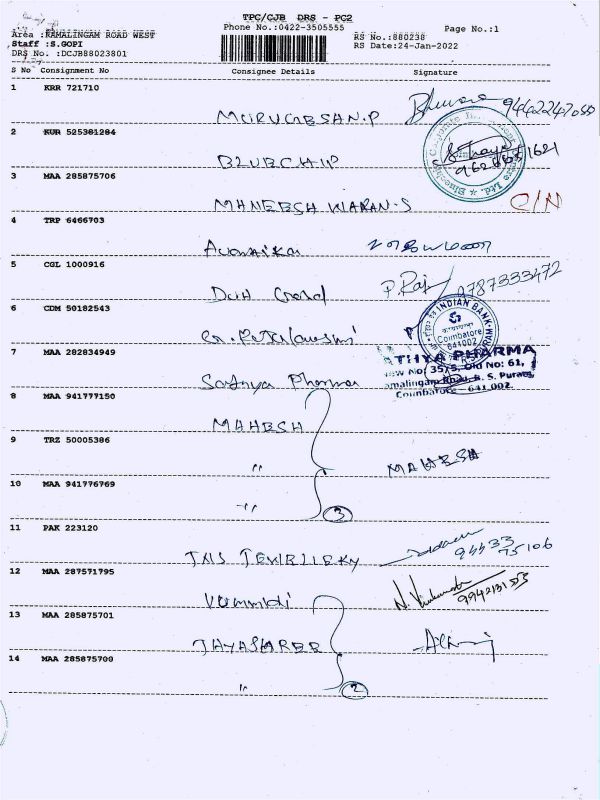 TPC/CJB DRS - PC2
Phone No.:0422-3505555
Page No.:1
Area :RAMALINGAM ROAD WEST
Staff :S.GOPI
DRS No. :DCJB88023801
RS No.:880238
RS Date:24-Jan-2022
S No Consignment No Consignee Details Signature
1 KRR 721710
MURUGESAN.P 9442247050
2 KUB 525381284
BLUECHIP
3 MAA 285875706
MANEESH WARAN.S C/N
4 TRP 6466703
5 CGL 1000916
P.Raj 9787333472
6 CDM 50182543
INDIAN BANK
Coimbatore
641002
7 MAA 282834949
Sathya Pharma
ATHYA PHARMA
New No: 35/5, Old No: 61,
amalingam Road, R. S. Puram,
Coimbatore - 641 002.
8 MAA 941777150
MAHESH
9 TRZ 50005386
" MAHESH
10 MAA 941776769
" 3
11 PAK 223120
94433 75106
12 MAA 287571795
Vummidi
13 MAA 285875701
JAYASHREE
14 MAA 285875700
" 2